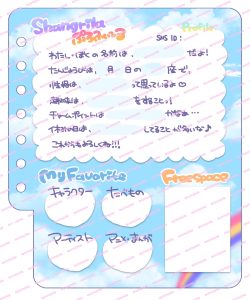 Shangrila
ぷろふぃーる
Profile
SNS ID :
わたし・ぼくの名前は、 だよ!
たんじょうびは、 月 日の 座で、
性格は、 って思ているよ
趣味は、 をすること♪
チャームポイントは かなぁ…
イキオシは、 してることが多いな♪
これからもよろしくね!!!
My Favorite
FreeSpace
キャラクター
たべもの
アーティスト
アニメ・まんが